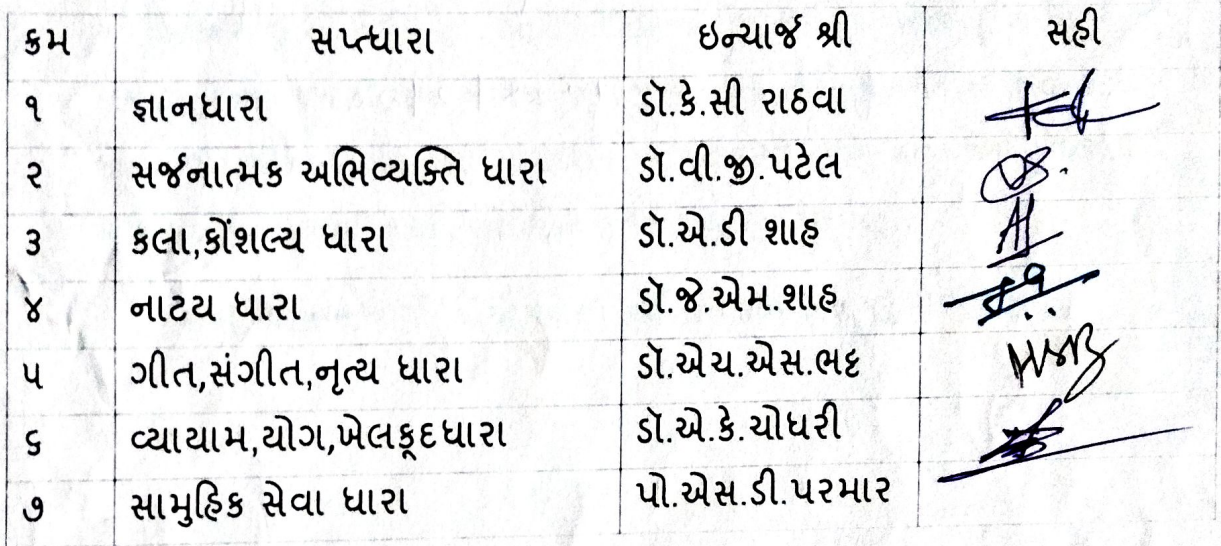 ક્રમ સપ્તધારા ઇન્ચાર્જ શ્રી સહી
૧ જ્ઞાનધારા ડૉ.કે.સી રાઠવા
૨ સર્જનાત્મક અભિવ્યક્તિ ધારા ડૉ.વી.જી.પટેલ
૩ કલા,કૌંશલ્ય ધારા ડૉ.એ.ડી શાહ
૪ નાટય ધારા ડૉ.જે.એમ.શાહ
૫ ગીત,સંગીત,નૃત્ય ધારા ડૉ.એચ.એસ.ભટ્ટ
૬ વ્યાયામ,યોગ,ખેલકૂદધારા ડૉ.એ.કે.ચોધરી
૭ સામુહિક સેવા ધારા પો.એસ.ડી.પરમાર